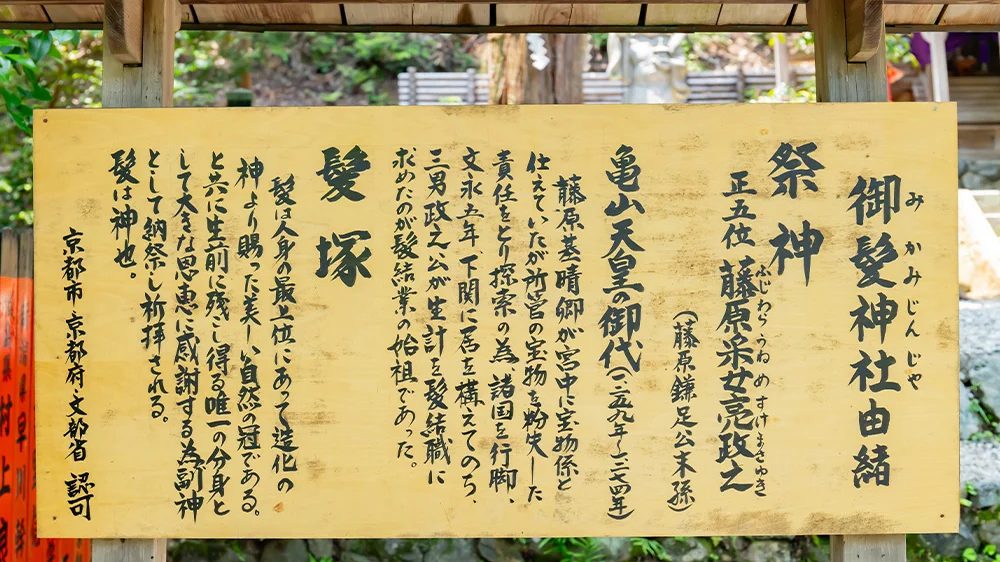 御髪神社由緒
みかみじんじゃ
祭神
正五位 藤原釆女亮政之
ふじわらうねめすけまさゆき
(藤原鎌足公末孫)
亀山天皇の御代(一二五九年～一二七四年)
藤原基晴卿が宮中に宝物係と
仕えていたが所管の宝物を紛失した
責任をとり探索の為、諸国を行脚、
文永五年、下関に居を構えてのち、
三男政之公が生計を髪結職に
求めたのが髪結業の始祖であった。
髪塚
髪は人身の最上位にあって造化の
神より賜った美しい自然の冠である。
と共に生前に残し得る唯一の分身と
して大きな恩恵に感謝する為副神
として納祭し祈拝される。
髪は神也。
京都市 京都府 文部省 認可
村上
早川